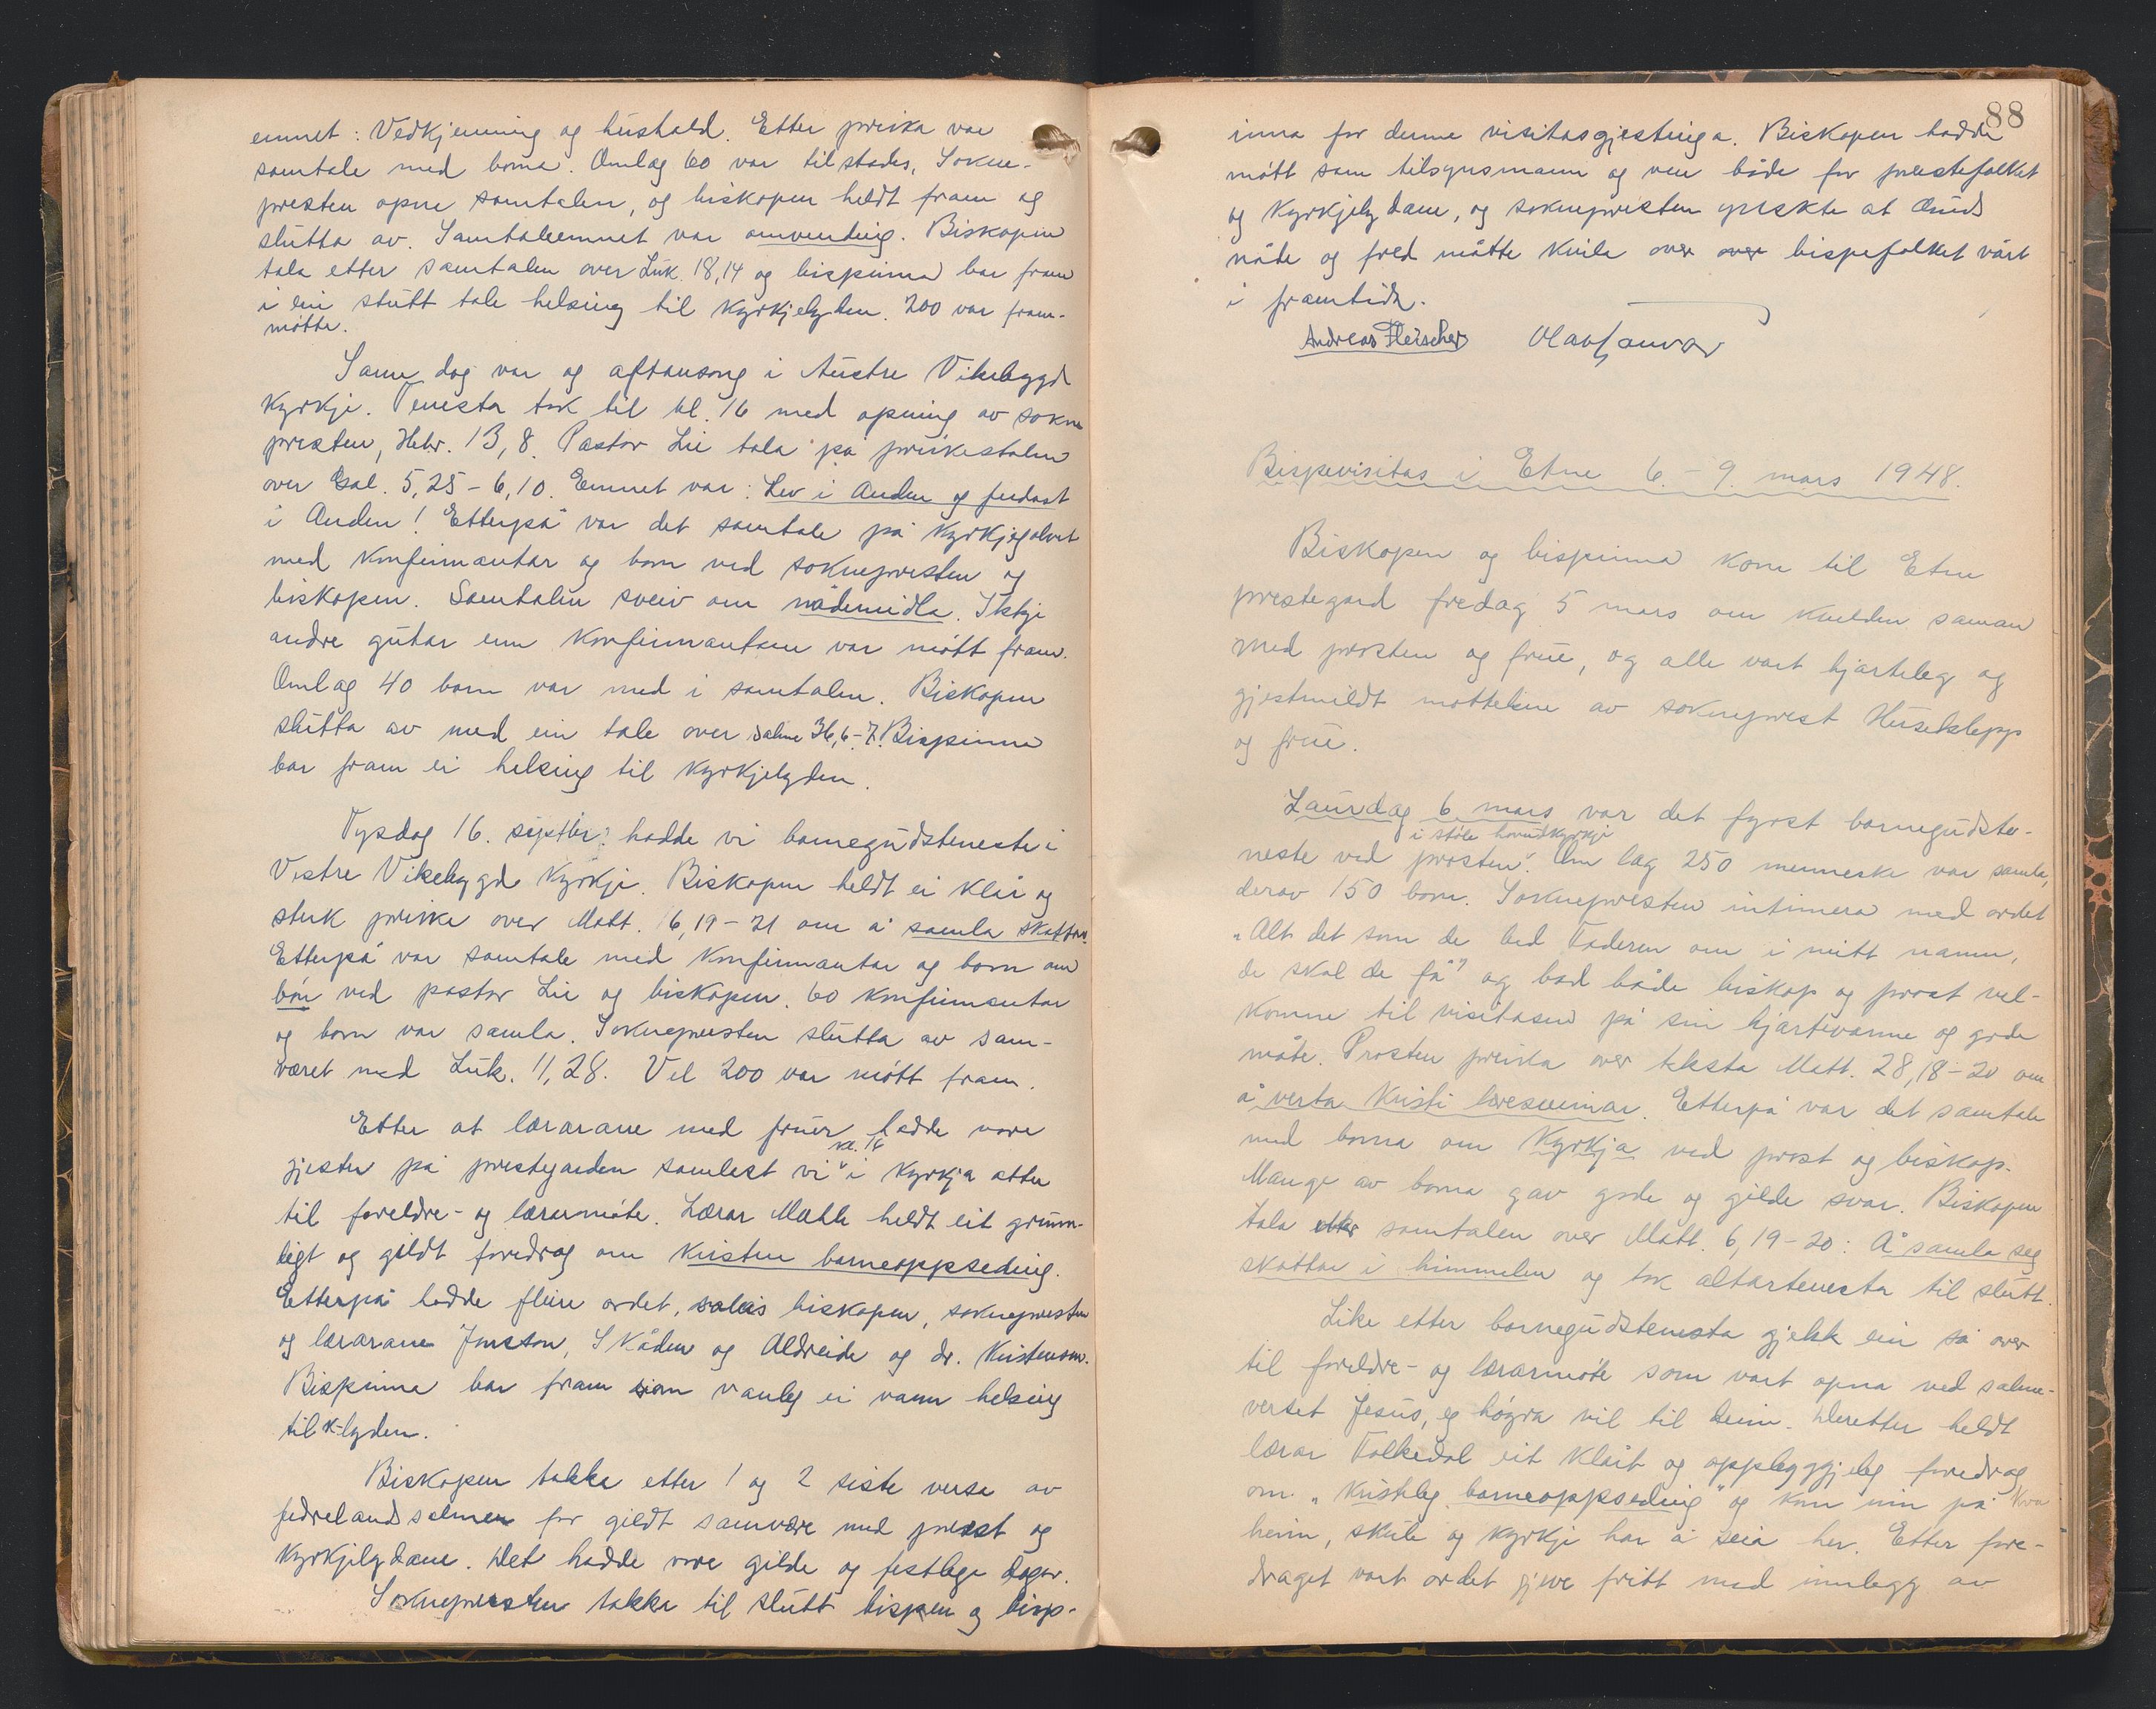 emnet: Vedkjenning og hushald. Etter preika var
samtale med borna. Omlag 60 var tilstades. Sokne-
presten opna samtalen, og biskopen heldt fram og
slutta av. Samtaleemnet var omvending. Biskopen
tala etter samtalen over Luk. 18,14 og bispinna bar fram
i ein stutt tale helsing til kyrkjelyden. 200 var fram-
møtte.
Same dag var og aftansong i Austre Vikebygd
Kyrkje. Tenesta tok til kl. 16 med opning av sokne
presten, Hebr. 13,8. Pastor Lie tala på preikestolen
over Gal. 5,25 - 6,10. Emnet var: Lev i Anden og ferdast
i Anden! Etterpå var det samtale på kyrkjegolvet
med konfirmantar og born ved soknepresten og
biskopen. Samtalen sveiv om nådemidla. Ikkje
andre gutar enn konfirmantane var møtt fram.
Omlag 40 born var med i samtalen. Biskopen
slutta av med ein tale over salme 36,6-7. Bispinna
bar fram ei helsing til kyrkjelyden.
Tysdag 16. septbr. hadde vi barnegudsteneste i
Vestre Vikebygd Kyrkje. Biskopen heldt ei klår og
sterk preike over Matt. 6,19-21 om å samla skattar.
Etterpå var samtale med konfirmantar og born om
bøn ved pastor Lie og biskopen. 60 konfirmantar
og born var samla. Soknepresten slutta av sam-
været med Luk. 11,28. Vel 200 var møtt fram.
Etter at lærarane med fruer hadde vore
kl. 16
gjester på prestegarden samlest vi i kyrkja atter
til foreldre- og lærarmøte. Lærar Mæhle heldt eit grunn-
ligt og gildt foredrag om kristen barneoppseding.
Etterpå hadde fleire ordet, soleis biskopen, soknepresten
og lærarane Jonston, Skåden og Aldreide og dr. Kristenson.
Bispinna bar fram som vanleg ei varm helsing
til k-lyden.
Biskopen takka etter 1 og 2 siste versa av
fedrelandssalmen for gildt samvære med prest og
kyrkjelydane. Det hadde vore gilde og festlege dagar.
Soknepresten takka til slutt bispen og bisp-
88
inna for denne visitasgjestinga. Biskopen hadde
møtt som tilsynsmann og ven både for prestefolket
og kyrkjelydane, og soknepresten ynskte at Guds
nåde og fred måtte kvila over over bispefolket vårt
i framtida.
Andreas Fleischer
Bispevisitas i Etne 6. - 9. mars 1948.
Biskopen og bispinna kom til Etne
prestegard fredag 5 mars om kvelden saman
med prosten og frue, og alle vart hjarteleg og
gjestmildt mottekne av sokneprest Huseklepp
og frue.
Laurdag 6. mars var det fyrst barnegudste-
i Støle hovudkyrkje
neste ved prosten. Om lag 250 menneske var samla,
derav 150 born. Soknepresten intimera med ordet
"Alt det som de bed Faderen om i mitt namn,
de skal de få" og bad både biskop og prost vel-
komne til visitasen på sin hjartevarme og gode
måte. Prosten preika over teksta Matt. 28,18-20 om
å verta Kristi læresveinar. Etterpå var det samtale
med borna om Kyrkja ved prost og biskop.
Mange av borna gav gode og gilde svar. Biskopen
tala etter samtalen over Matt. 6,19-20: Å samla seg
skattar i himmelen og tok altartenesta til slutt.
Like etter barnegudstenesta gjekk ein så over
til foreldre- og lærarmøte som vart opna ved salme-
verset Jesus, eg høyra vil til deim. Deretter heldt
lærar Folkedal eit klårt og oppbyggjeleg foredrag
om "Kristeleg barneoppseding" og kom inn på kva
heim, skule og kyrkje har å seia her. Etter fore-
draget vart ordet gjeve fritt med innlegg av